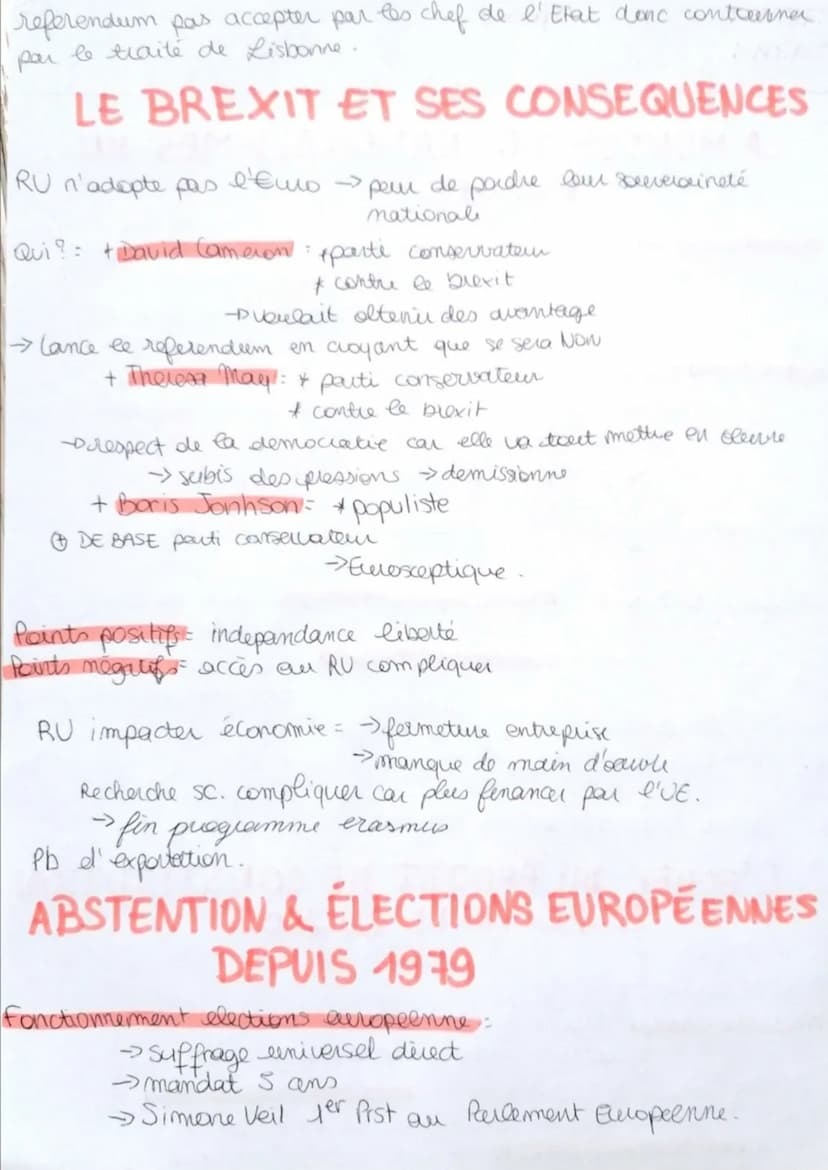 referendum pas accepter par les chef de l'Etat donc contourner
par le traité de Lisbonne.
LE BREXIT ET SES CONSEQUENCES
RU n'adopte pas l'€uro → peur de perdre leur souveraineté
nationale
Qui? : + David Cameron : * parti conservateur
* contre le brexit
→ voulait obtenir des avantage
→ lance le referendum en croyant que se sera NON
+ Theresa May : * parti conservateur
* contre le brexit
→ respect de la democratie car elle va tout mettre en oeuvre
→ subis des pressions → demissionne
+ Boris Jonhson = * populiste
⊕ DE BASE parti conservateur
→ Eurosceptique.
Points positifs = independance liberté
Points négatifs = accès au RU compliquer
RU impacter économie = → fermeture entreprise
→ manque de main d'oeuvre
Recherche sc. compliquer car plus financer par l'UE.
→ fin programme erasmus
Pb d'exportation.
ABSTENTION & ÉLECTIONS EUROPÉENNES
DEPUIS 1979
Fonctionnement elections europeenne :
→ suffrage universel direct
→ mandat 5 ans
→ Simone Veil 1er Prst au Parlement Europeenne.